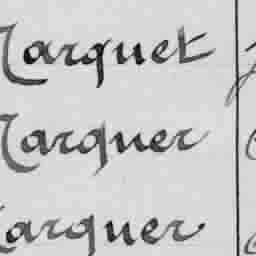 Marquet
Marquer
Marquer